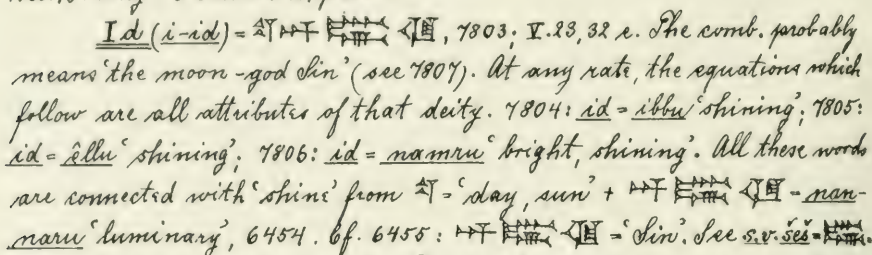 Id (i-id) = 𒌓 𒀭 𒋀 𒆠, 7803; V.23, 32 e. The comb. probably
means 'the moon-god Sin' (see 7807). At any rate, the equations which
follow are all attributes of that deity. 7804: id = ibbu 'shining'; 7805:
id = êllu 'shining'; 7806: id = namru 'bright, shining'. All these words
are connected with 'shine' from 𒌓 = 'day, sun' + 𒀭 𒋀 𒆠 = nan-
naru 'luminary', 6454. Cf. 6455: 𒀭 𒋀 𒆠 = 'Sin'. See s.v. šeš = 𒋀.